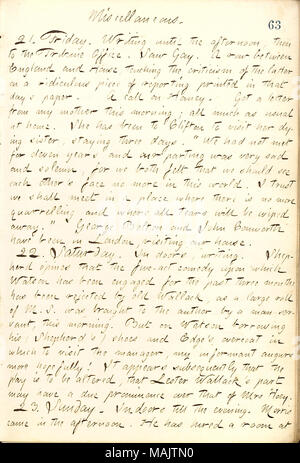 Miscellaneous.
63
21. Friday. Writing until the afternoon, then
to the Tribune Office. Saw Gay. A row between
England and House touching the criticism of the latter
on a ridiculous piece of reporting printed in that
day's paper. A call on Haney. Got a letter
from my mother this morning; all much as usual
at home. She has been to Clifton to visit her dy-
ing sister, staying three days. "We had not met
for eleven years, and our parting was very sad
and solemn, for we both felt that we should see
each other's face no more in this world. I trust
we shall meet in a place where there is no more
quarrelling and where all tears will be wiped
away." George Bolton and John Conworth
have been in London, visiting our house.
22. Saturday. In doors, writing. Shep-
herd opines that the five-act comedy upon which
Watson has been engaged for the past three months
has been rejected by old Wallack, as a large roll
of M.S. was brought to the author by a man ser-
vant, this morning. But on Watson borrowing
his (Shepherd's) shoes and Edge's overcoat in
which to visit the manager, my informant augurs
more hopefully. It appears subsequently that the
play is to be altered, that Lester Wallack's part
may have a due prominence over that of Mrs Hoey.
23. Sunday. Indoors till the evening. Morris
came in the afternoon. He has hired a room at
alamy
Image ID: MAJTN0
www.alamy.com